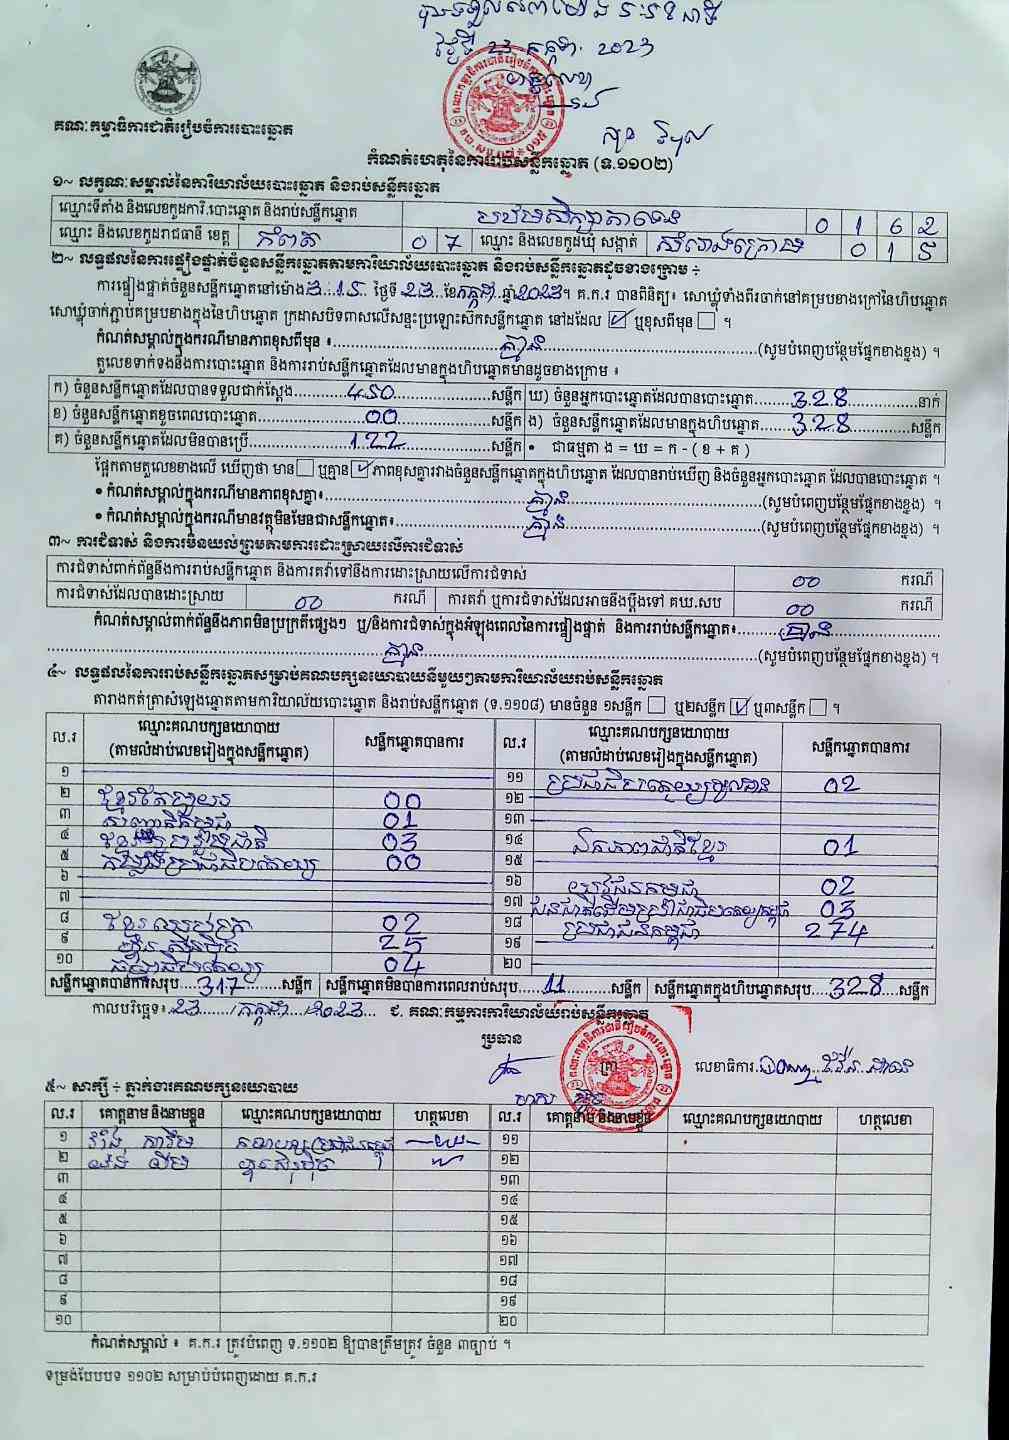 ថ្ងៃទី 23 កក្កដា 2023
គណៈកម្មាធិការជាតិរៀបចំការបោះឆ្នោត
កំណត់ហេតុនៃការរាប់សន្លឹកឆ្នោត (ទ.១១០២)
១~ លក្ខណៈសម្គាល់នៃការិយាល័យបោះឆ្នោត និងរាប់សន្លឹកឆ្នោត
ឈ្មោះទីតាំង និងលេខកូដការិ.បោះឆ្នោត និងរាប់សន្លឹកឆ្នោត 0 1 6 2
ឈ្មោះ និងលេខកូដរាជធានី ខេត្ត កំពត 0 7 ឈ្មោះ និងលេខកូដឃុំ សង្កាត់ សំរោងក្រោម 0 1 5
២~ លទ្ធផលនៃការផ្ទៀងផ្ទាត់ចំនួនសន្លឹកឆ្នោតតាមការិយាល័យបោះឆ្នោត និងរាប់សន្លឹកឆ្នោតដូចខាងក្រោម ÷
ការផ្ទៀងផ្ទាត់ចំនួនសន្លឹកឆ្នោតនៅម៉ោង 3:15 ថ្ងៃទី 23 ខែ កក្កដា ឆ្នាំ 2023។ គ.ក.រ បានពិនិត្យ៖ សោឃ្លុំទាំងពីរចាក់នៅគម្របខាងក្រៅនៃហិបឆ្នោត
សោឃ្លុំចាក់ភ្ជាប់គម្របខាងក្នុងនៃហិបឆ្នោត ក្រដាសបិទពាសលើសន្ទះប្រឡោះស៊កសន្លឹកឆ្នោត នៅដដែល ☑ ឬខុសពីមុន ☐ ។
កំណត់សម្គាល់ក្នុងករណីមានភាពខុសពីមុន ៖ គ្មាន (សូមបំពេញបន្ថែមផ្នែកខាងខ្នង) ។
តួលេខទាក់ទងនឹងការបោះឆ្នោត និងការរាប់សន្លឹកឆ្នោតដែលមានក្នុងហិបឆ្នោតមានដូចខាងក្រោម ៖
ក) ចំនួនសន្លឹកឆ្នោតដែលបានទទួលជាក់ស្ដែង 450 សន្លឹក ឃ) ចំនួនអ្នកបោះឆ្នោតដែលបានបោះឆ្នោត 328 នាក់
ខ) ចំនួនសន្លឹកឆ្នោតខូចពេលបោះឆ្នោត 00 សន្លឹក ង) ចំនួនសន្លឹកឆ្នោតដែលមានក្នុងហិបឆ្នោត 328 សន្លឹក
គ) ចំនួនសន្លឹកឆ្នោតដែលមិនបានប្រើ 122 សន្លឹក • ជាធម្មតា ង = ឃ = ក - ( ខ + គ )
ផ្អែកតាមតួលេខខាងលើ ឃើញថា មាន ☐ ឬគ្មាន ☑ ភាពខុសគ្នារវាងចំនួនសន្លឹកឆ្នោតក្នុងហិបឆ្នោត ដែលបានរាប់ឃើញ និងចំនួនអ្នកបោះឆ្នោត ដែលបានបោះឆ្នោត ។
• កំណត់សម្គាល់ក្នុងករណីមានភាពខុសគ្នា៖ គ្មាន (សូមបំពេញបន្ថែមផ្នែកខាងខ្នង) ។
• កំណត់សម្គាល់ក្នុងករណីមានវត្ថុមិនមែនជាសន្លឹកឆ្នោត៖ គ្មាន (សូមបំពេញបន្ថែមផ្នែកខាងខ្នង) ។
៣~ ការជំទាស់ និងការមិនយល់ព្រមតាមការដោះស្រាយលើការជំទាស់
ការជំទាស់ពាក់ព័ន្ធនឹងការរាប់សន្លឹកឆ្នោត និងការតវ៉ាទៅនឹងការដោះស្រាយលើការជំទាស់ 00 ករណី
ការជំទាស់ដែលបានដោះស្រាយ 00 ករណី ការតវ៉ា ឬការជំទាស់ដែលអាចនឹងប្ដឹងទៅ គឃ.សប 00 ករណី
កំណត់សម្គាល់ពាក់ព័ន្ធនឹងភាពមិនប្រក្រតីផ្សេងៗ ឬ/និងការជំទាស់ក្នុងអំឡុងពេលនៃការផ្ទៀងផ្ទាត់ និងការរាប់សន្លឹកឆ្នោត៖ គ្មាន
គ្មាន (សូមបំពេញបន្ថែមផ្នែកខាងខ្នង) ។
៤~ លទ្ធផលនៃការរាប់សន្លឹកឆ្នោតសម្រាប់គណបក្សនយោបាយនីមួយៗតាមការិយាល័យរាប់សន្លឹកឆ្នោត
តារាងកត់ត្រាសំឡេងឆ្នោតតាមការិយាល័យបោះឆ្នោត និងរាប់សន្លឹកឆ្នោត (ទ.១១០៨) មានចំនួន ១សន្លឹក ☐ ឬ២សន្លឹក ☑ ឬ៣សន្លឹក ☐ ។
ល.រ ឈ្មោះគណបក្សនយោបាយ (តាមលំដាប់លេខរៀងក្នុងសន្លឹកឆ្នោត) សន្លឹកឆ្នោតបានការ ល.រ ឈ្មោះគណបក្សនយោបាយ (តាមលំដាប់លេខរៀងក្នុងសន្លឹកឆ្នោត) សន្លឹកឆ្នោតបានការ
១ ១១ ប្រជាធិបតេយ្យមូលដ្ឋាន 02
២ ខ្មែរតែមួយ 00 ១២
៣ 01 ១៣
៤ 03 ១៤ ឯកភាពជាតិខ្មែរ 01
៥ កម្លាំងប្រជាធិបតេយ្យ 00 ១៥
៦ ១៦ យុវជនកម្ពុជា 02
៧ ១៧ ជនជាតិដើមប្រជាធិបតេយ្យកម្ពុជា 03
៨ 02 ១៨ ប្រជាជនកម្ពុជា 274
៩ ហ៊្វុនស៊ិនប៉ិច 25 ១៩
១០ ធម្មាធិបតេយ្យ 04 ២០
សន្លឹកឆ្នោតបានការសរុប 317 សន្លឹក សន្លឹកឆ្នោតមិនបានការពេលរាប់សរុប 11 សន្លឹក សន្លឹកឆ្នោតក្នុងហិបឆ្នោតសរុប 328 សន្លឹក
កាលបរិច្ឆេទ៖ 23 / កក្កដា / 2023 ជ. គណៈកម្មការការិយាល័យរាប់សន្លឹកឆ្នោត
ប្រធាន
ត្រា លេខាធិការ
៥~ សាក្សី ÷ ភ្នាក់ងារគណបក្សនយោបាយ
ល.រ គោត្តនាម និងនាមខ្លួន ឈ្មោះគណបក្សនយោបាយ ហត្ថលេខា ល.រ គោត្តនាម និងនាមខ្លួន ឈ្មោះគណបក្សនយោបាយ ហត្ថលេខា
១ គណបក្សប្រជាជនកម្ពុជា ១១
២ ១២
៣ ១៣
៤ ១៤
៥ ១៥
៦ ១៦
៧ ១៧
៨ ១៨
៩ ១៩
១០ ២០
កំណត់សម្គាល់ ៖ គ.ក.រ ត្រូវបំពេញ ទ.១១០២ ឱ្យបានត្រឹមត្រូវ ចំនួន ៣ច្បាប់ ។
ទម្រង់បែបបទ ១១០២ សម្រាប់បំពេញដោយ គ.ក.រ